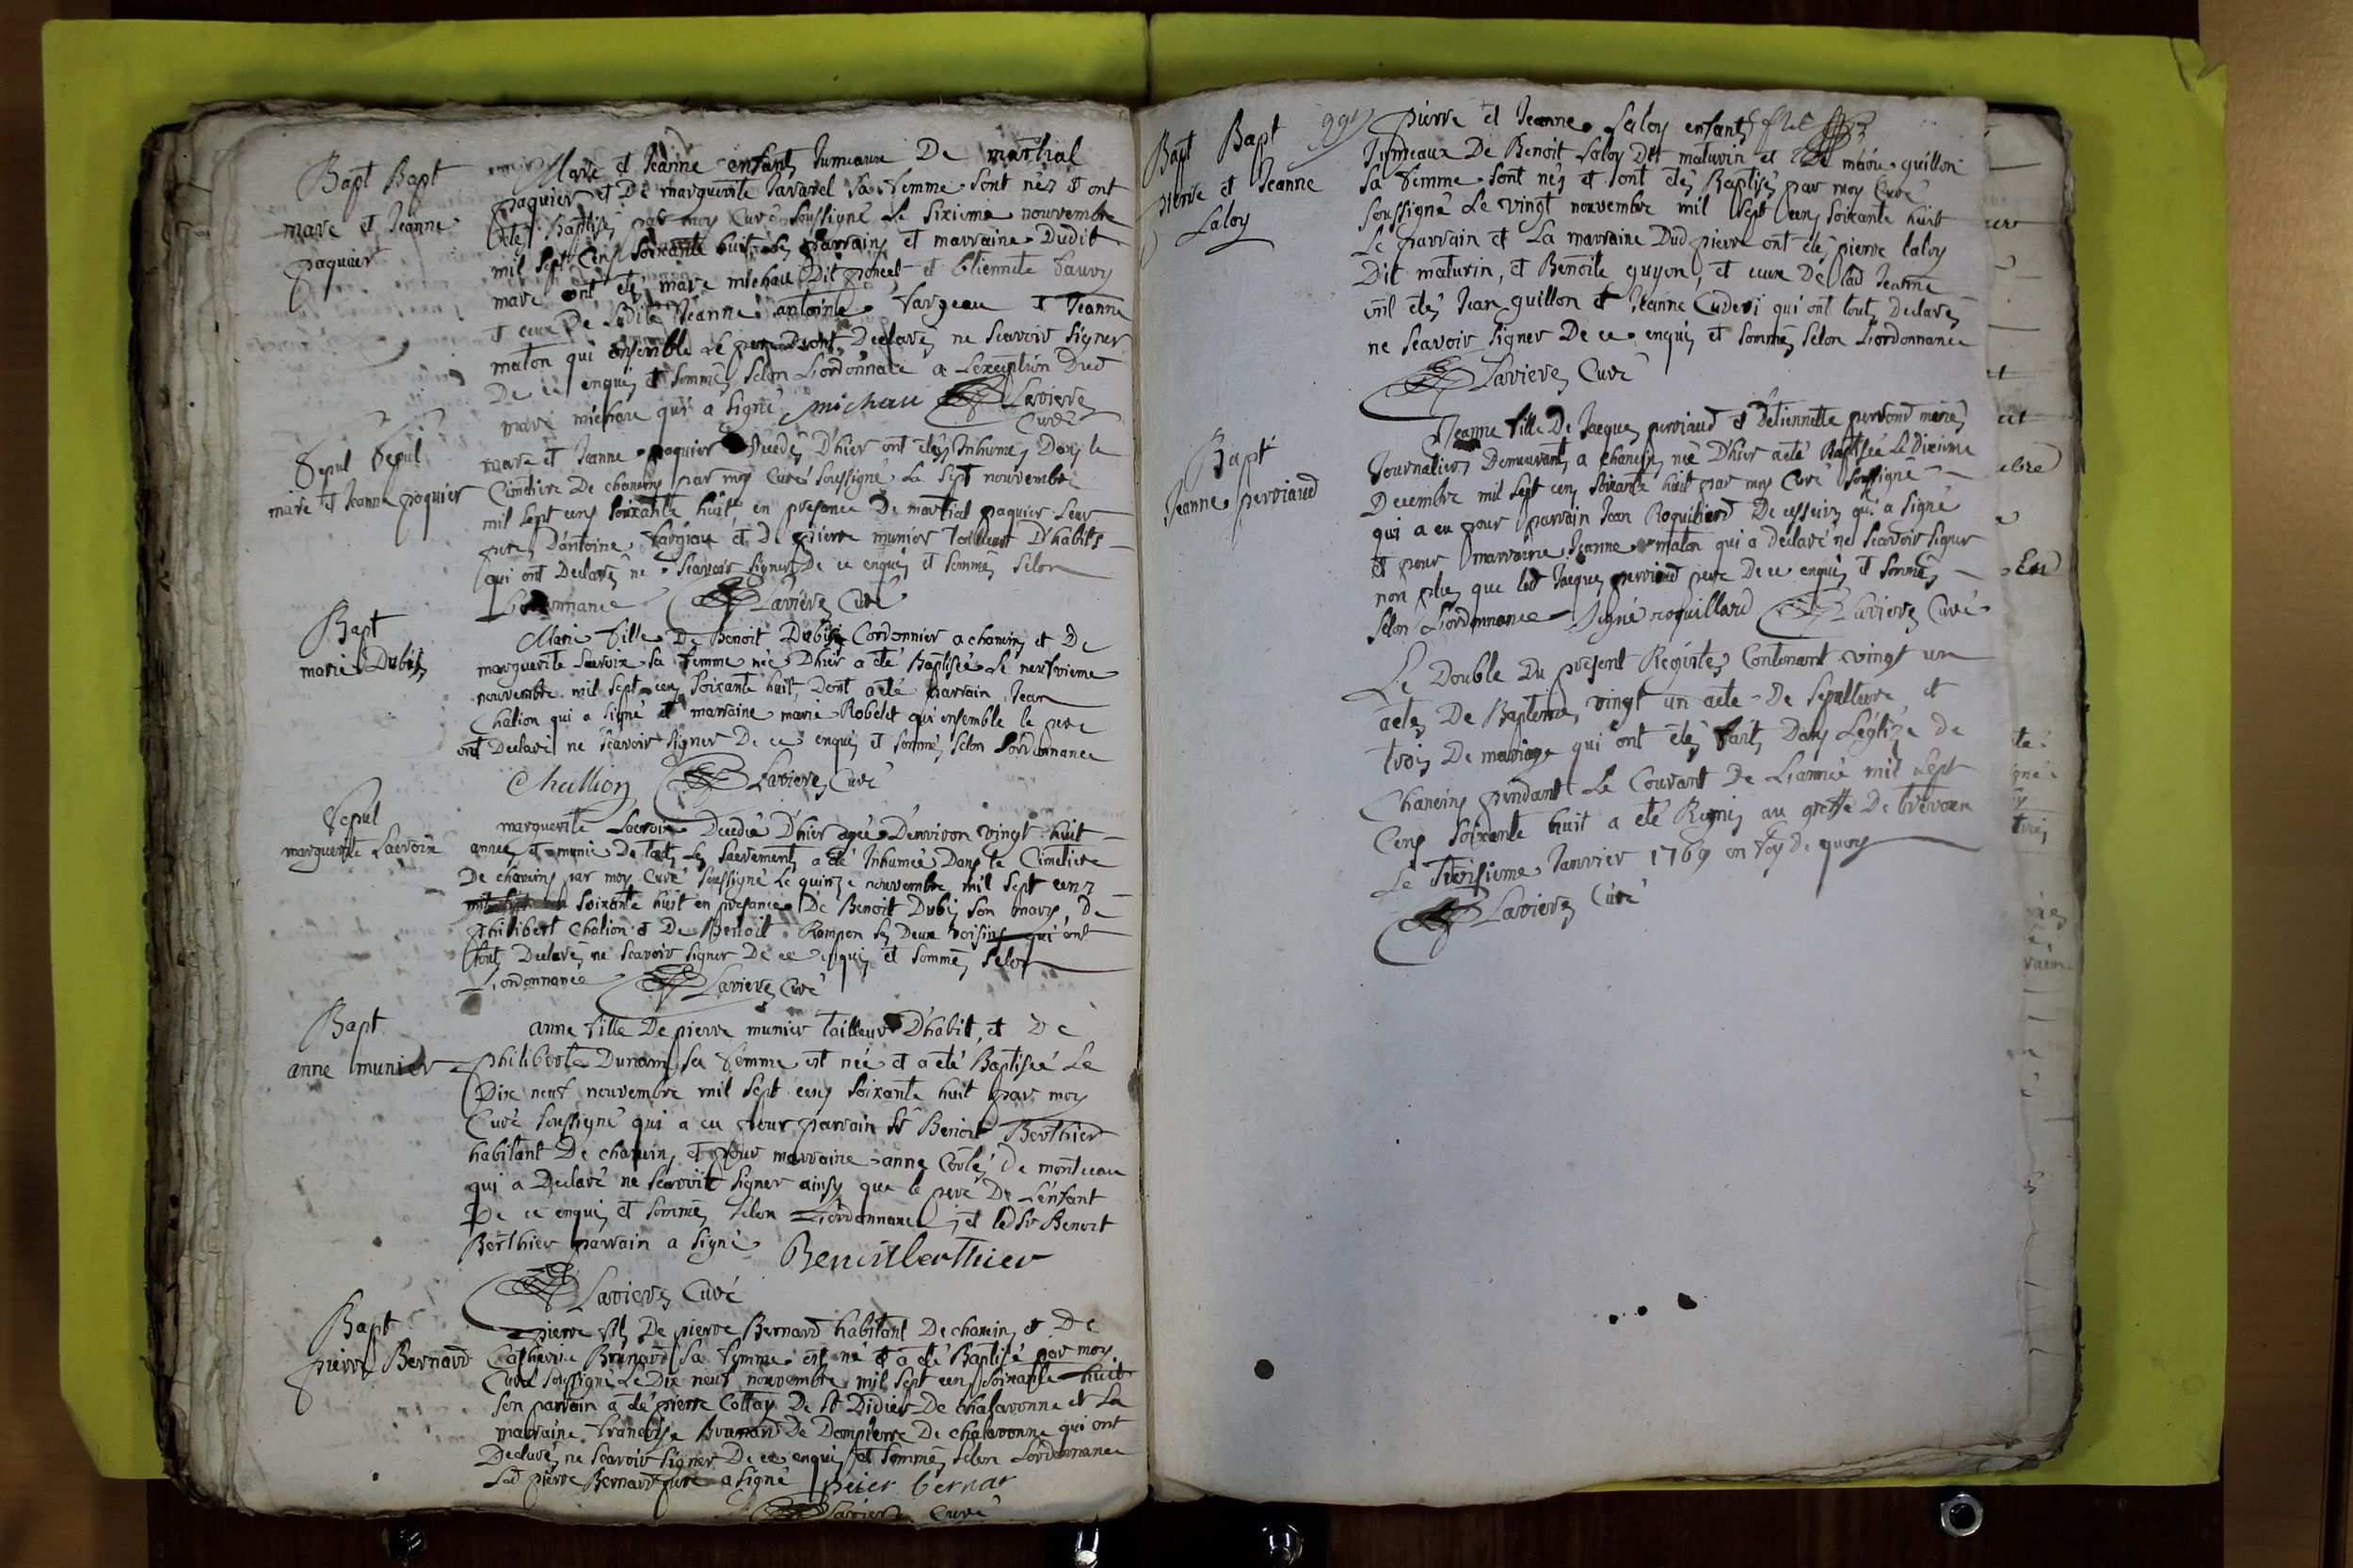 Bapt Bapt
marc et Jeanne
paquier
Marc et Jeanne enfants Jumeaux De martial
paquier et De marguerite Javarel Sa femme sont nés et ont
étés Baptisés par moy Curé soussigné Le sixieme nouvembre
mil sept Cens soixante huit Les parrains et marraine Dudit
marc ont étés marc michau Dit poncet et Etiennete fauvy
et ceux De Ladite Jeanne antoine fargeau et Jeanne
maton qui ensemble Le pere Dont Declarés ne scavoir signer
De ce enquis et sommés selon Lordonnance a Lexception Dud
marc michau qui a signé michau Laviere
Curé
Sepul Sepul
marc et Jeanne paquier
marc et Jeanne paquier Decedés D'hier ont étés Inhumés Dans le
Cimetiere De chaneins par moy Curé soussigné Le sept nouvembre
mil sept cens soixante huit en presence De martial paquier Leur
pere, D'antoine fargeau et De pierre munier Tailleur D'habits
qui ont Declarés ne scavoir signer De ce enquis et sommés selon
Lordonnance Laviere Curé
Bapt
marie Dubis
Marie fille De Benoit Dubis Cordonnier a chaneins et De
marguerite Lacroix sa femme née D'hier a eté Baptisée Le neufvieme
nouvembre mil sept cens soixante huit, Dont a eté parrain Jean
Chalion qui a signé et marraine marie Robelet qui ensemble le pere
ont Declaré ne scavoir signer De ce enquis et sommés selon Lordonnance
Challion Laviere Curé
Sepul
marguerite Lacroix
marguerite Lacroix Decedée D'hier agée D'environ vingt huit
années et munie De touts Les sacrements a eté Inhumée Dans le Cimetiere
De chaneins par moy Curé soussigné Le quinze nouvembre mil sept cens
soixante huit en presence De Benoit Dubis son mary, De
philibert Chalion et De Benoit Rampon ses Deux voisins qui ont
touts Declarés ne scavoir signer De ce enquis et sommés selon
Lordonnance Laviere Curé
Bapt
anne munier
anne fille De pierre munier tailleur D'habit, et De
philiberte Dunam sa femme est née et a eté Baptisée Le
Dix neuf nouvembre mil sept cens soixante huit par moy
Curé soussigné qui a eu pour parrain Sr Benoit Berthier
habitant De chaneins et pour marraine anne Corlés de montceau
qui a Declaré ne scavoir signer ainsy que le pere De L'enfant
De ce enquis et sommés selon Lordonnance, et led Sr Benoit
Berthier parrain a signé Benoit berthier
Laviere Curé
Bapt
pierre Bernard
pierre fils De pierre Bernard habitant De chaneins et De
Catherine Brunard sa femme est né et a eté Baptisé par moy
Curé soussigné Le Dix neuf nouvembre mil sept cens soixante huit
son parrain a eté pierre Cottay De St Didier De chalaronne et La
marraine francoise Brunard De Dompierre De chalaronne qui ont
Declarés ne scavoir signer De ce enquis et sommés selon Lordonnance
Led pierre Bernard pere a signé peier bernar
Laviere Curé
Bapt Bapt
pierre et Jeanne
Laloy
99
pierre et Jeanne Laloy enfants
Jumeaux De Benoit Laloy Dit maturin et marie guillon
sa femme sont nés et sont étés Baptisés par moy Curé
soussigné Le vingt nouvembre mil sept cens soixante huit
Le parrain et La marraine Dud pierre ont étés pierre laloy
Dit maturin, et Benoite guyon, et ceux De lad Jeanne
ont étés Jean guillon et Jeanne Cuderi qui ont touts Declarés
ne scavoir signer De ce enquis et sommés selon Lordonnance
Laviere Curé
Bapt
Jeanne perviaud
Jeanne fille De Jacques perviaud et D'etiennette perrond mariés
Journaliers Demeurants a chaneins née D'hier a eté Baptisée Le Dixieme
Decembre mil sept cens soixante huit par moy Curé soussigné
qui a eu pour parrain Jean Roquillard De cesseins qui a signé
et pour marraine Jeanne maton qui a declaré ne scavoir signer
non plus que led Jacques perviaud pere De ce enquis et sommés
selon Lordonnance Signé roquillard Laviere Curé
Le Double Du present Registre Contenant vingt un
actes De Bapteme, vingt un acte De sepulture et
trois De mariage qui ont étés faits Dans Leglize de
Chaneins pendant Le Courant De L'année mil sept
Cens soixante huit a eté Remis au greffe De trevoux
Le Troisieme Janvier 1769 en foy de quoy
Laviere Curé